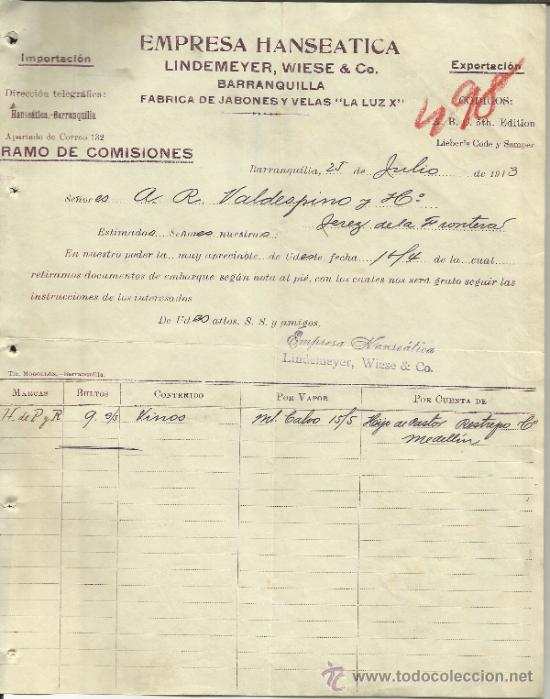 EMPRESA HANSEATICA
LINDEMEYER, WIESE & Co.
BARRANQUILLA
FABRICA DE JABONES Y VELAS "LA LUZ X"
Importación
Dirección telegráfica:
Hanseática.-Barranquilla
Apartado de Correo 132
RAMO DE COMISIONES
Exportación
498
CODIGOS:
A. B. C. 5th. Edition
Lieber's Code y Samper
Barranquilla, 25 de Julio de 1913
Señores A. R. Valdespino y Hº
Jerez de la Frontera
Estimados Señores nuestros:
En nuestro poder la muy apreciable de Udes de fecha 14/4 de la cual
retiramos documentos de embarque según nota al pié, con los cuales nos será grato seguir las
instrucciones de los interesados
De Udes attos. S. S. y amigos,
Empresa Hanseática
Lindemeyer, Wiese & Co.
Tip. Mogollon.-Barranquilla.
MARCAS BULTOS CONTENIDO POR VAPOR POR CUENTA DE
H. de P y R 9 Vinos Ml. Calvo 15/5 Hijo de Pastor Restrepo Cº
Medellin
www.todocoleccion.net